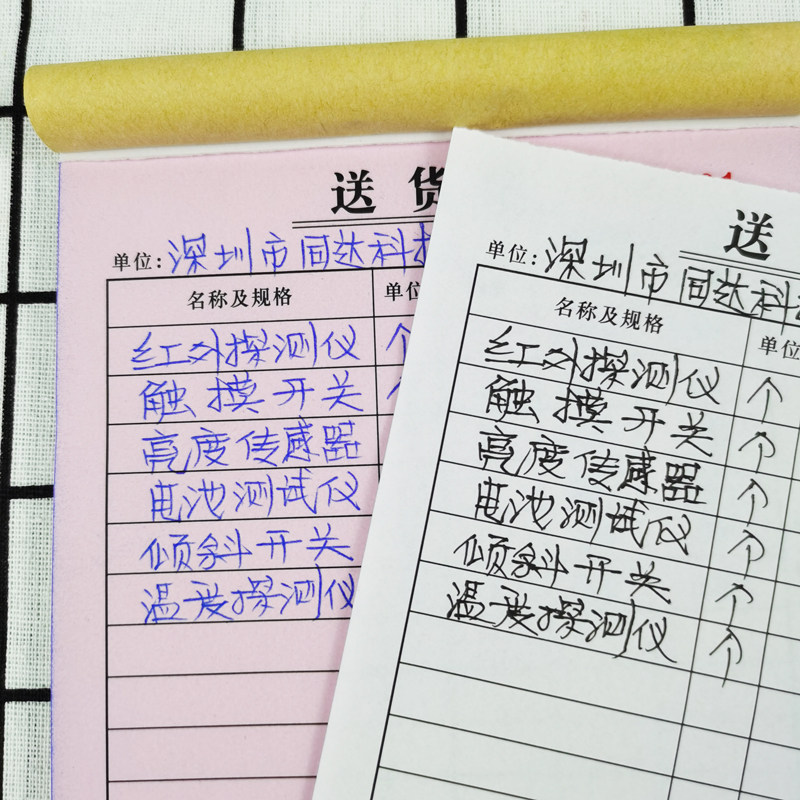 送货
单位: 深圳市同达科
名称及规格 单位
红外探测仪 个
触摸开关
亮度传感器
电池测试仪
倾斜开关
温度探测仪
送
单位: 深圳市同达科
名称及规格 单位
红外探测仪 个
触摸开关 个
亮度传感器 个
电池测试仪 个
倾斜开关 个
温度探测仪 个